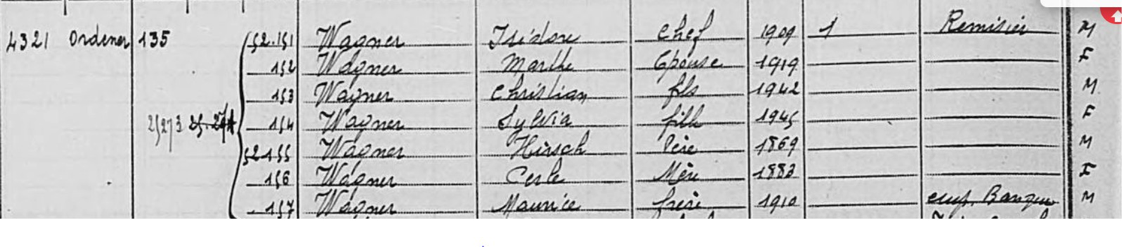 4321 Ordener 135 52.151 Wagner Isidore Chef 1909 1 Remisier M
152 Wagner Marthe Epouse 1919 F
153 Wagner Christian fils 1942 M
154 Wagner Sylvia fille 1945 F
52155 Wagner Hirsch Père 1869 M
156 Wagner Cerle Mère 1883 F
157 Wagner Maurice frère 1910 emp. Banque M